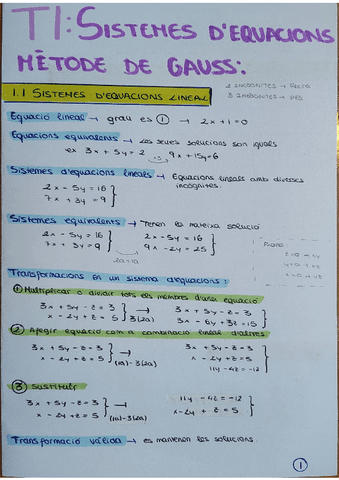 T1: SISTEMES D'EQUACIONS
MÈTODE DE GAUSS:
2 INCÒGNITES → RECTA
3 INCÒGNITES →
1.1 SISTEMES D'EQUACIONS LINEALS
Equació lineal → grau és ① → 2x+1=0
Equacions equivalents → Les seves solucions són iguals
ex 3x+5y=2 9x+15y=6
Sistemes d'equacions lineals → Equacions lineals amb diverses
incògnites.
2x-5y=16
7x+3y=9
Sistemes equivalents → Tenen la mateixa solució
2x-5y=16 2x-5y=16
7x+3y=9 9x-2y=25
Transformacions en un sistema d'equacions:
① Multiplicar o dividir tots els membres d'una equació
3x+5y-z=3 3x+5y-z=3
x-2y+z=5 3(2a) 3x-6y+3z=15
② Afegir equació com a combinació lineal d'altres
3x+5y-z=3 3x+5y-z=3
x-2y+z=5 → (1a)-3(2a) x-2y+z=5
11y-4z=-12
③ Sustituir
3x+5y-z=3 → 11y-4z=-12
x-2y+z=5 (1a)-3(2a) x-2y+z=5
Transformació vàlida → es mantenen les solucions.
①